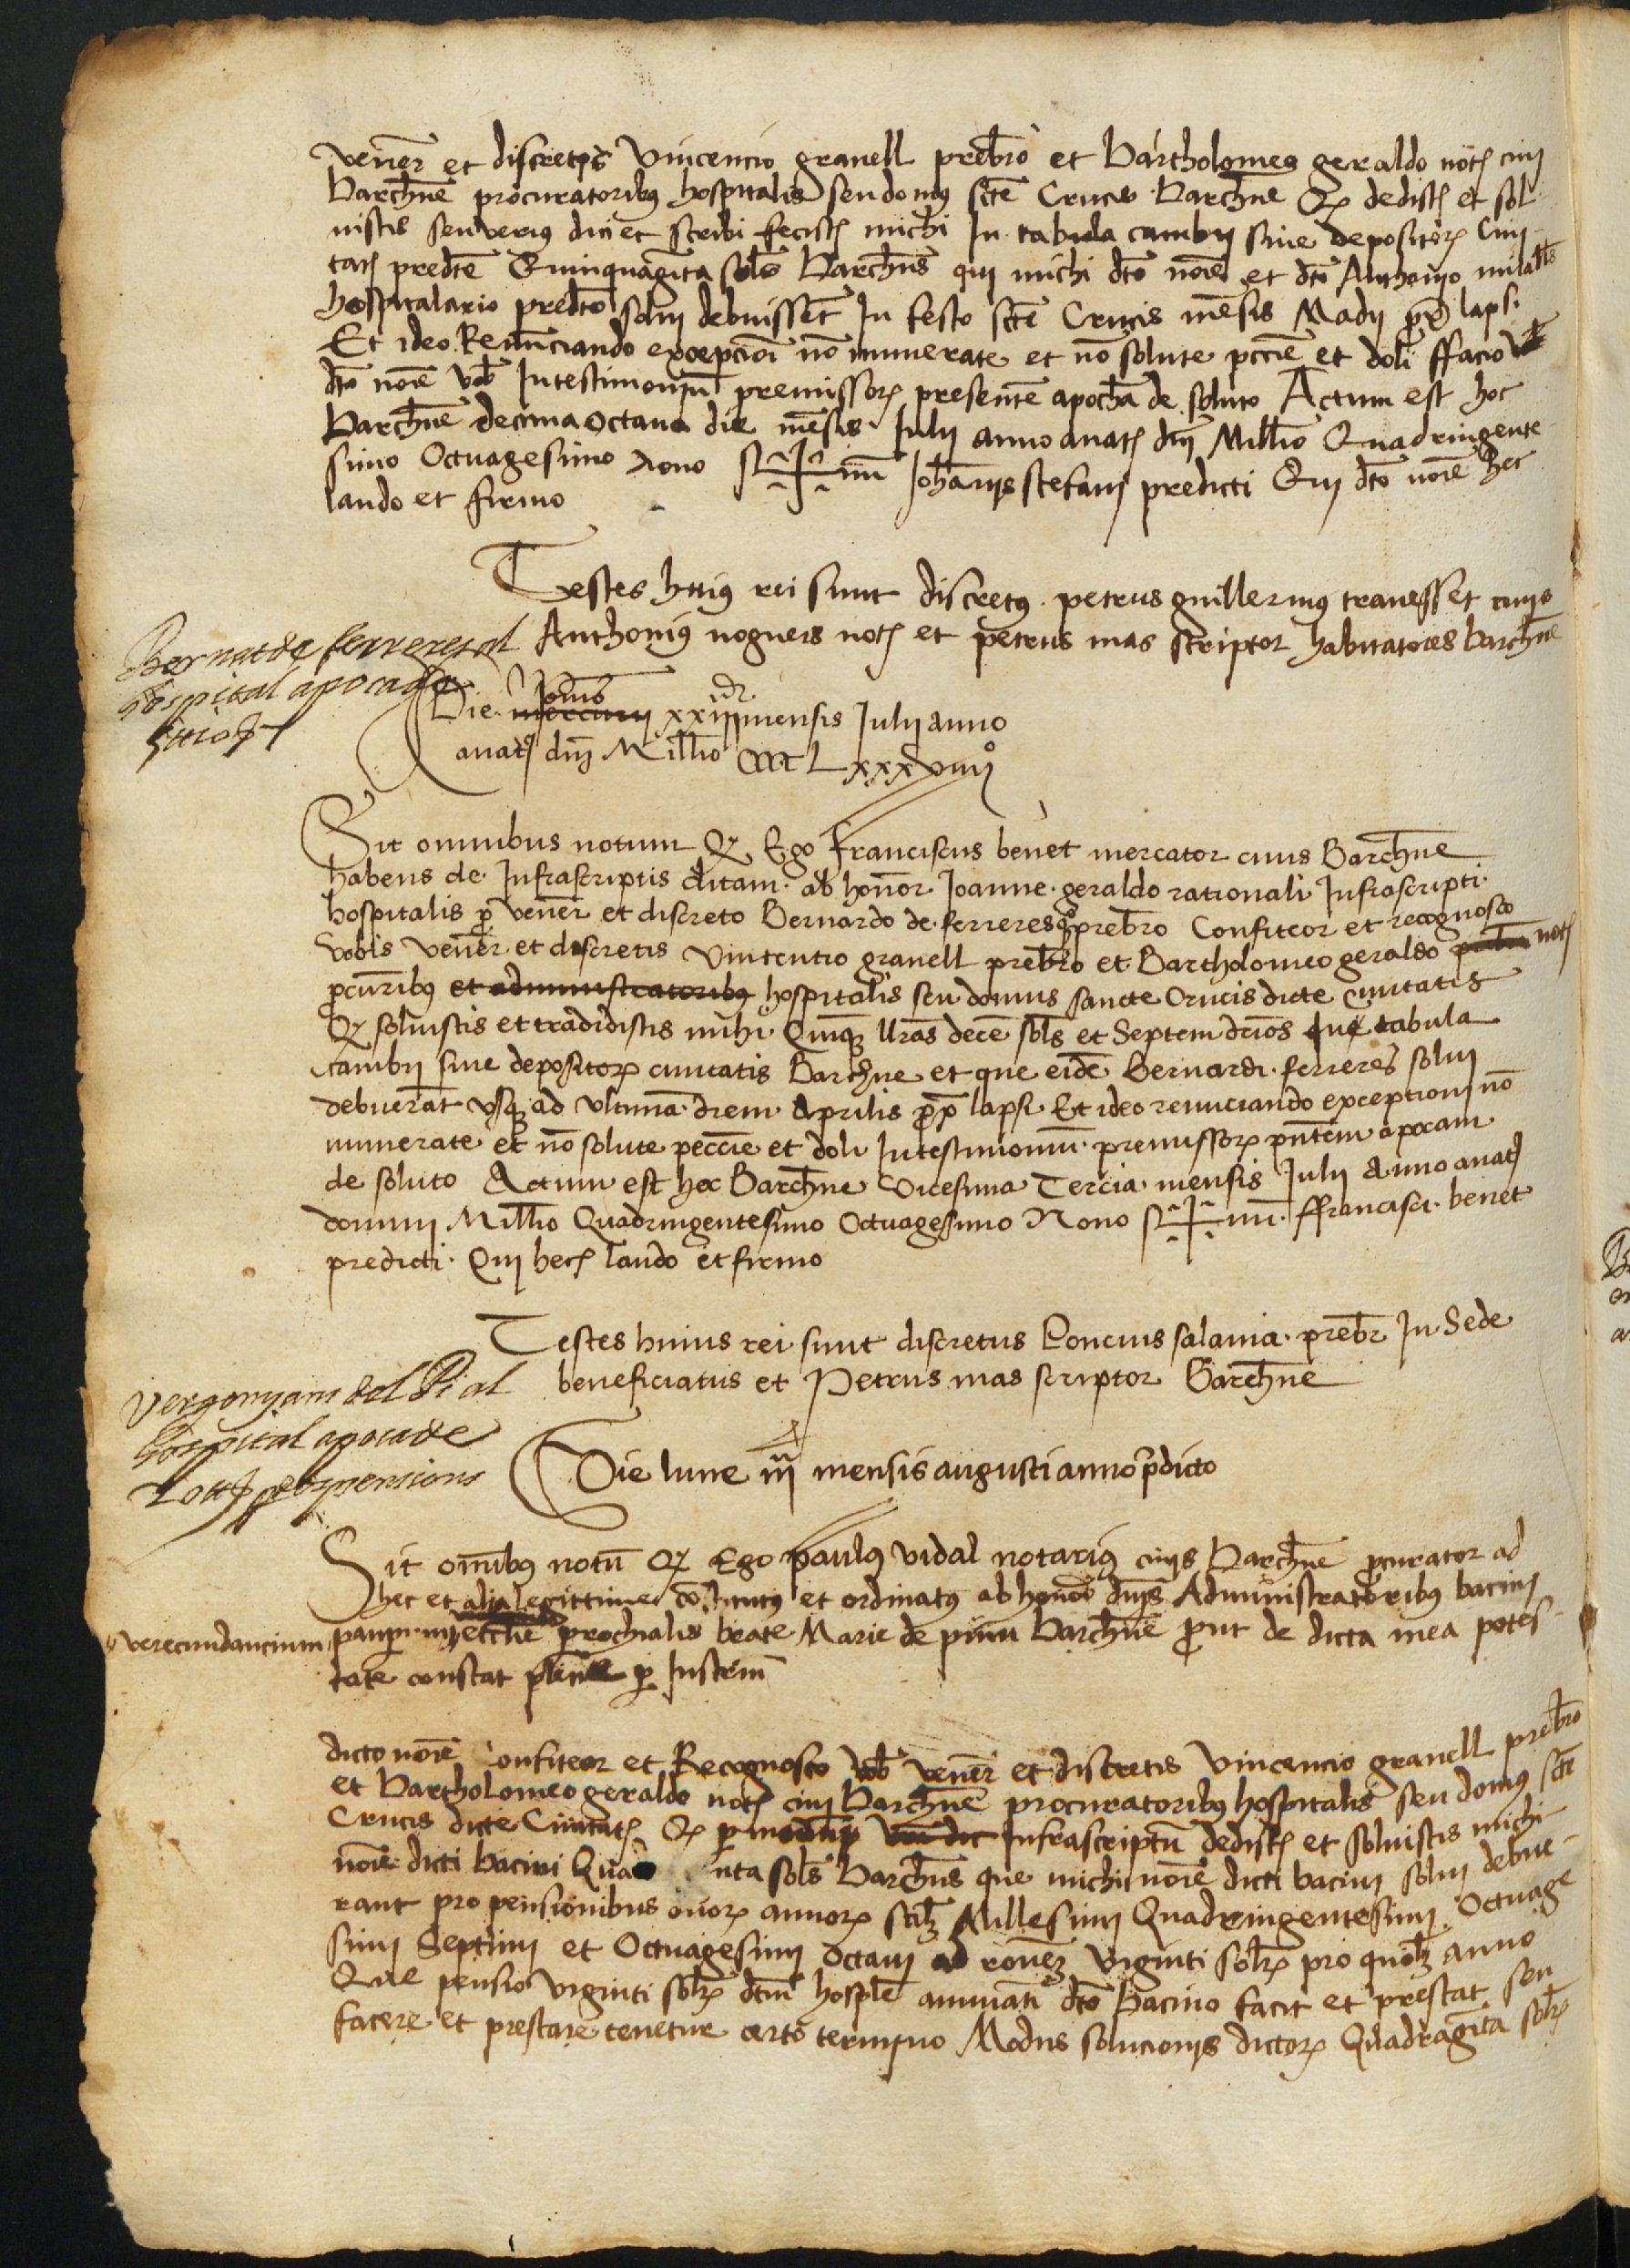 vener et discretis Vincencio granell prebro et Bartholomeo geraldo not civi
Barchne procuratoribus hospitalis seu domus scte Crucis Barchne Qz dedist et sol
vistis seu verius dici et scribi fecist michi In tabula cambij sive depositorz Civi
tatz predcte Quinquaginta sols Barchns qui michi dco noie et dco Anthonio
hospitalario predcto solvi debuissent In festo scte Crucis mensis Madij laps
Et ideo Renunciando excepcioni no numerate et no solute peccie et doli ffacio
dco noie vob In testimonium premissorz presente apocha de soluto Actum est hoc
Barchne decima octava die mensis Julij anno anatz dni Millio Quadringente
simo Octuagesimo nono S+num Johannis stefani predicti Qui dco noie hec
laudo et firmo
Testes huius rei sunt discretus petrus guillermus travesset civis
Anthonius noguers notz et petrus mas scriptor habitatores barchne
Bernat de ferreres al
hospital apoca de
Die mercurij Jovis xxiij mensis Julij anno
anatz dnj Millio CCCC Lxxxviiij
Sit omnibus notum Qz Ego Franciscus benet mercator civis Barchne
habens de Infrascriptis ditam ab honor Joanne geraldo rationali Infrascripti
hospitalis pro vener et discreto Bernardo de ferreres prebro Confiteor et recognosco
vobis vener et discretis Vincentio granell prebro et Bartholomeo geraldo prebro notz
procuribus et administratoribus hospitalis seu domus sancte Crucis dicte civitatis
Qz solvistis et tradidistis mihi Quinqz llras dece sols et Septem drios tabula
cambij sive depositorz civitatis Barchne et que eide Bernardi ferreres solvi
debuerat usqz ad ultima diem Aprilis prox lapsi Et ideo renunciando exceptioni no
numerate et no solute peccie et doli In testimonium premissorz pntem apocam
de soluto Actum est hoc Barchne Vicesima Tercia mensis Julij Anno anatz
domini Millio Quadringentesimo Octuagesimo Nono S+num ffrancisci benet
predicti Qui hec laudo et firmo
Testes huius rei sunt discretus Poncius salavia prebr In Sede
beneficiatus et Petrus mas scriptor Barchne
Vergonyans del Pi al
hospital apoca de
pensions
Die lune iij mensis augusti anno predicto
Sit omibus notu Qz Ego paulus vidal notarius civis Barchne procurator ad
hec et alia legittime constitutus et ordinatus ab honor dnis Administratoribus bacini
verecundancium pauperum ecclie prochialis beate Marie de pinu Barchne prout de dicta mea potes
tate constat plene p Instrum
dicto noie Confiteor et Recognosco vob vener et discretis Vincencio granell prebro
et Bartholomeo geraldo notz civi Barchne procuratoribus hospitalis seu domus scte
Crucis dicte Civitatz Qz p modum Infrascriptu dedistz et solvistis michi
noie dicti bacini Qua nta sols Barchns que michi noie dicti bacini solvi debue
rant pro pensionibus duorz annorz scilz Millesimi Quadringentesimi Octuage
simi Septimi et Octuagesimi Octavi ad ronez viginti solrz pro quolz anno
Que pensio viginti solrz dcm hosple annuati dco bacino facit et prestat seu
facere et prestare tenetur certo termino Modus solucionis dictorz Quadraginta solrz